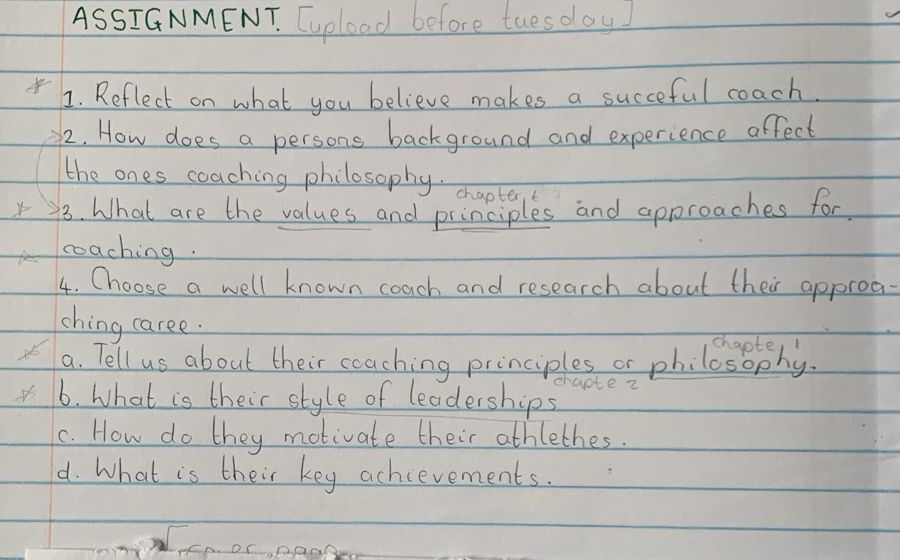 ASSIGNMENT. [upload before tuesday]
1. Reflect on what you believe makes a succeful coach.
2. How does a persons background and experience affect
the ones coaching philosophy.
chapter
3. What are the values and principles and approaches for
coaching.
4. Choose a well known coach and research about their approa-
ching caree.
chapte 1
a. Tell us about their coaching principles or philosophy.
chapte 2
b. What is their style of leaderships
c. How do they motivate their athlethes.
d. What is their key achievements.